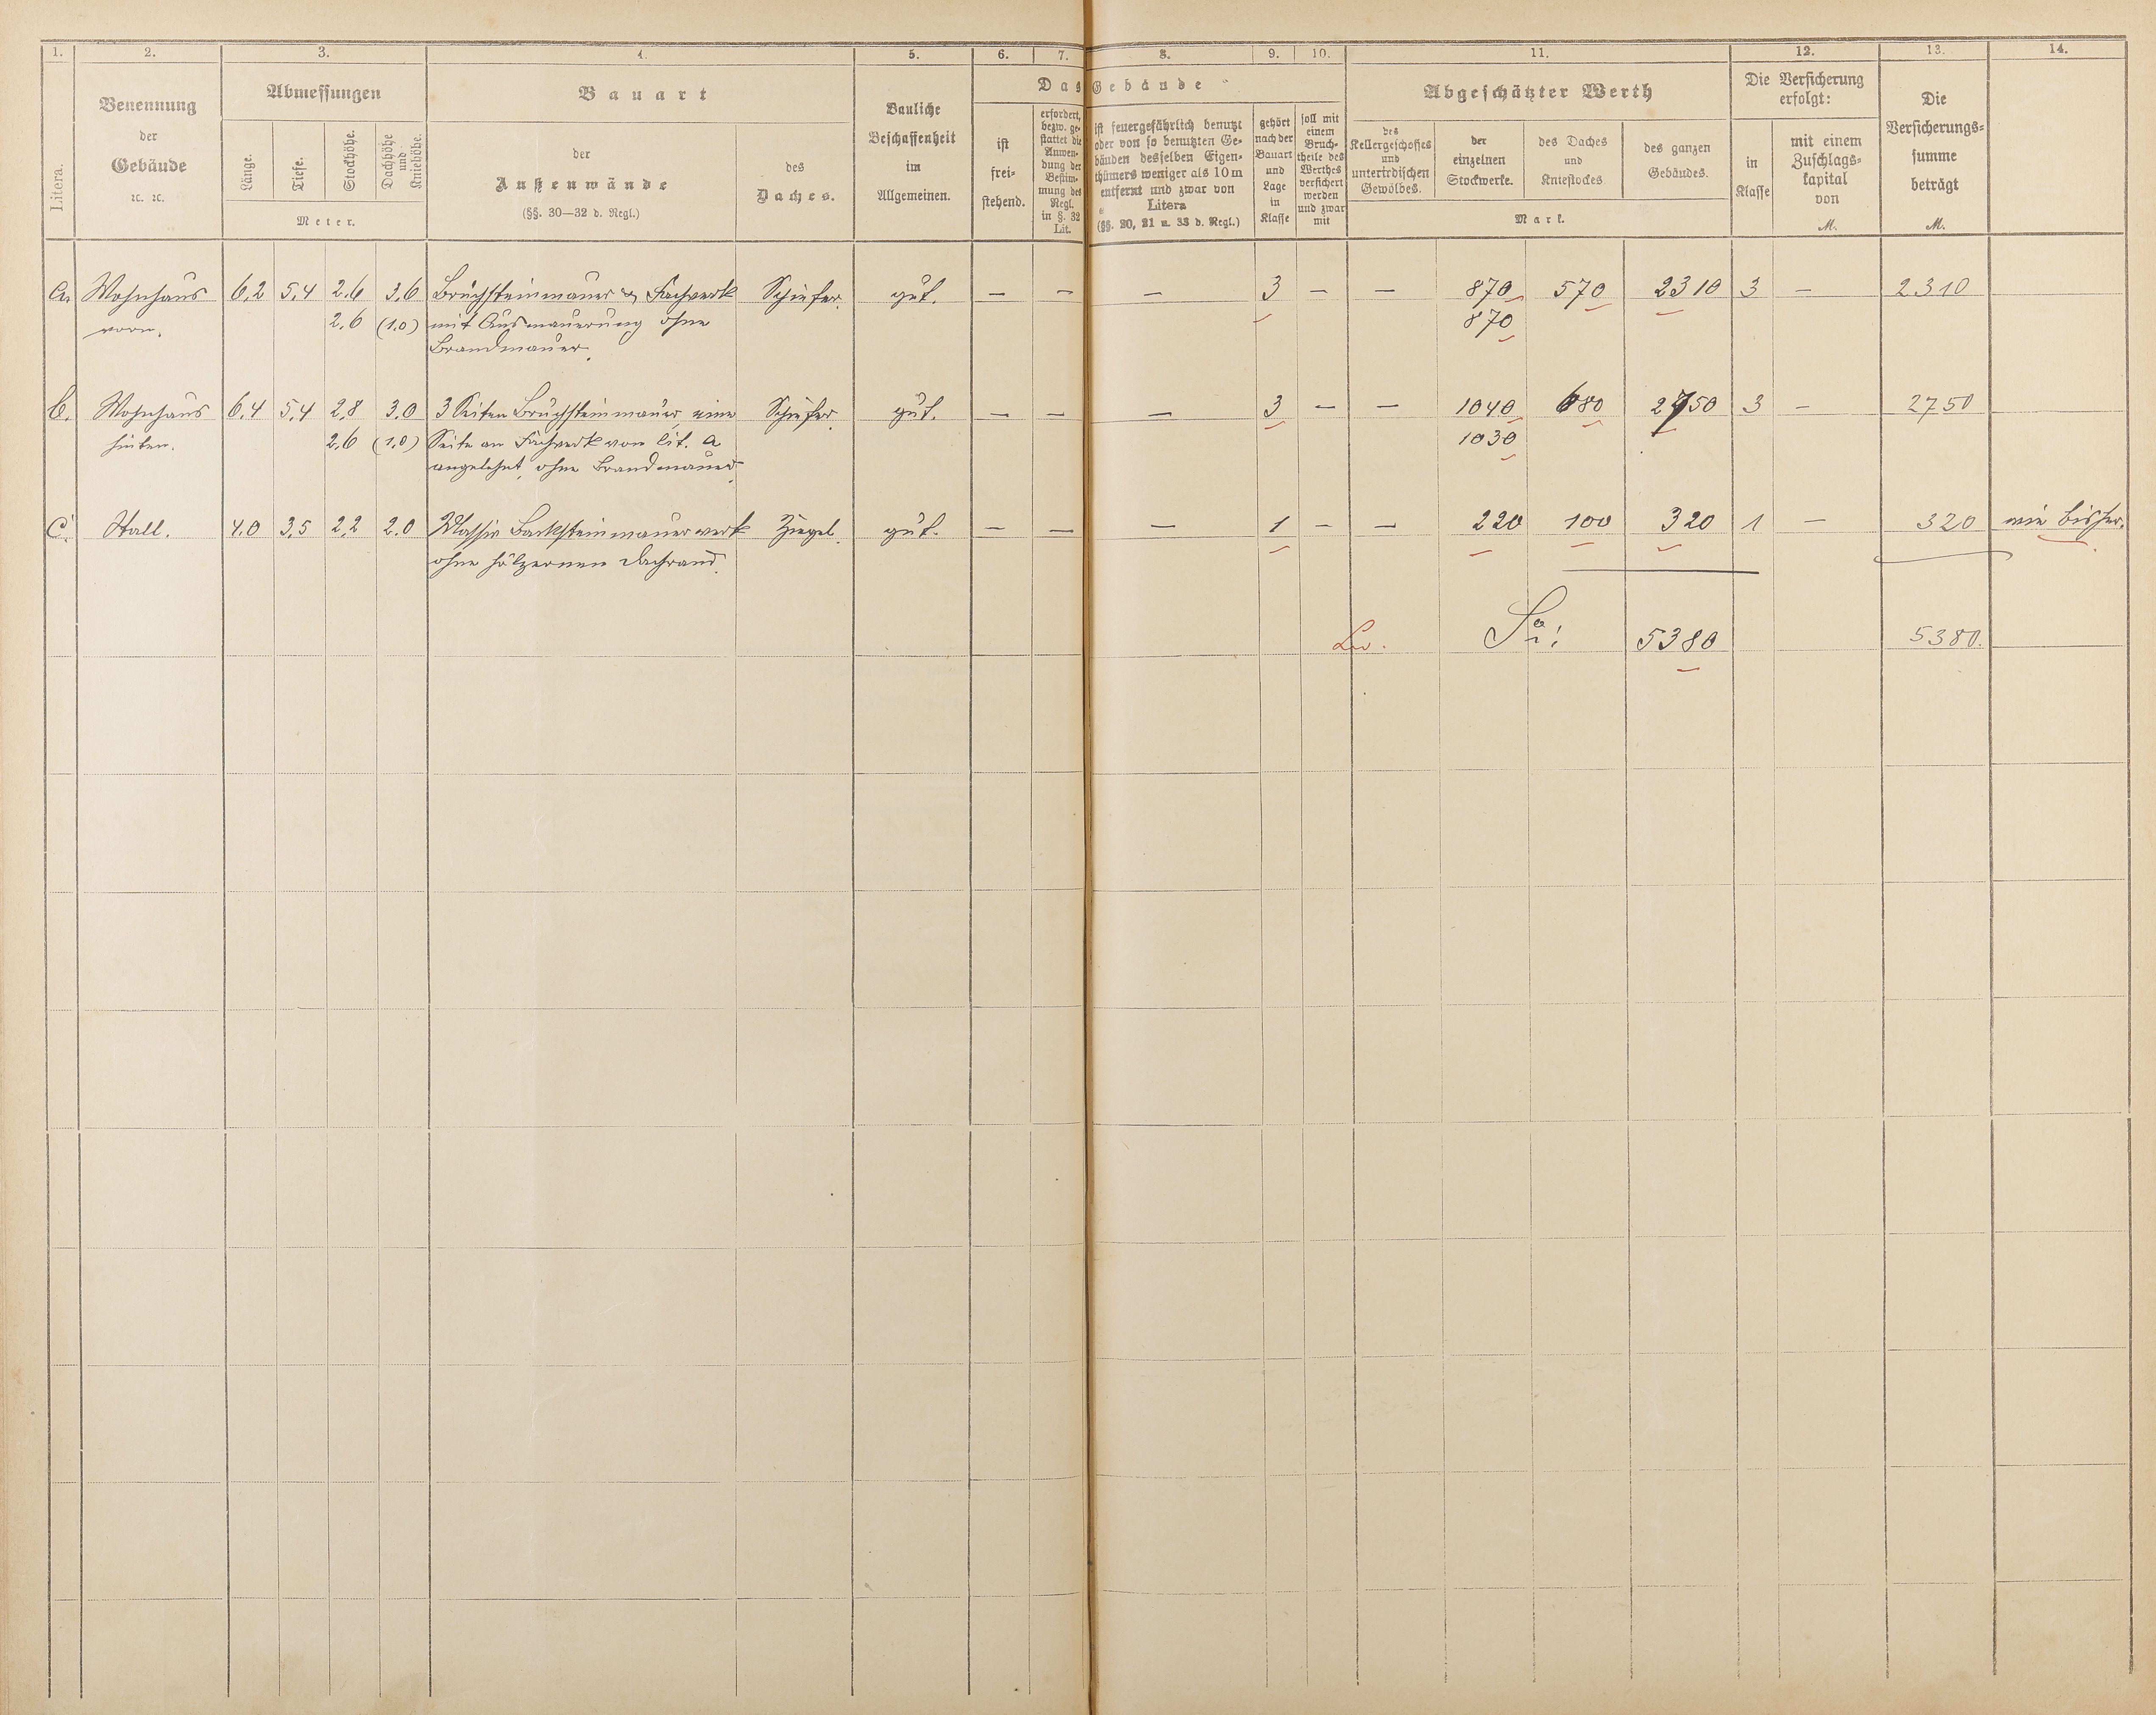 1. 2. 3. 4. 5. 6. 7. 8. 9. 10. 11. 12. 13. 14.
Litera.
Benennung
der
Gebäude
ꝛc. ꝛc.
Abmessungen
Länge.
Tiefe.
Stockhöhe.
Dachhöhe
und
Kniehöhe.
Meter.
Bauart
der
Außenwände
(§§. 30—32 d. Regl.)
des
Daches.
Bauliche
Beschaffenheit
im
Allgemeinen.
Das Gebäude
ist
frei-
stehend.
erfordert,
bezw. ge-
stattet die
Anwen-
dung der
Bestim-
mung des
Regl.
in §. 32
Lit.
ist feuergefährlich benutzt
oder von so benutzten Ge-
bäuden desselben Eigen-
thümers weniger als 10 m
entfernt und zwar von
Litera
(§§. 20, 21 u. 33 d. Regl.)
gehört
nach der
Bauart
und
Lage
in
Klasse
soll mit
einem
Bruch-
theile des
Werthes
versichert
werden
und zwar
mit
Abgeschätzter Werth
des
Kellergeschosses
und
unterirdischen
Gewölbes.
der
einzelnen
Stockwerke.
des Daches
und
Kniestockes
des ganzen
Gebäudes.
Mark.
Die Versicherung
erfolgt:
in
Klasse
mit einem
Zuschlags-
kapital
von
M.
Die
Versicherungs-
summe
beträgt
M.
a. Wohnhaus 6,2 5,4 2,6 3,6 Bruchsteinmauer & Fachwerk Schiefer. gut. — — — 3 — — 870 570 2310 3 — 2310
vorn. 2,6 (1,0) mit Ausmauerung ohne 870
Brandmauer.
b. Wohnhaus 6,4 5,4 2,8 3,0 3 Seiten Bruchsteinmauer, eine Schiefer. gut. — — — 3 — — 1040 680 2750 3 — 2750
hinten. 2,6 (1,0) Seite an Fachwerk von lit. a 1030
angelehnt, ohne Brandmauer.
c. Stall. 4,0 3,5 2,2 2,0 Massiv Backsteinmauerwerk Ziegel. gut. — — — 1 — — 220 100 320 1 — 320 wie bisher.
ohne hölzernen Dachrand.
Sa: 5380 5380.